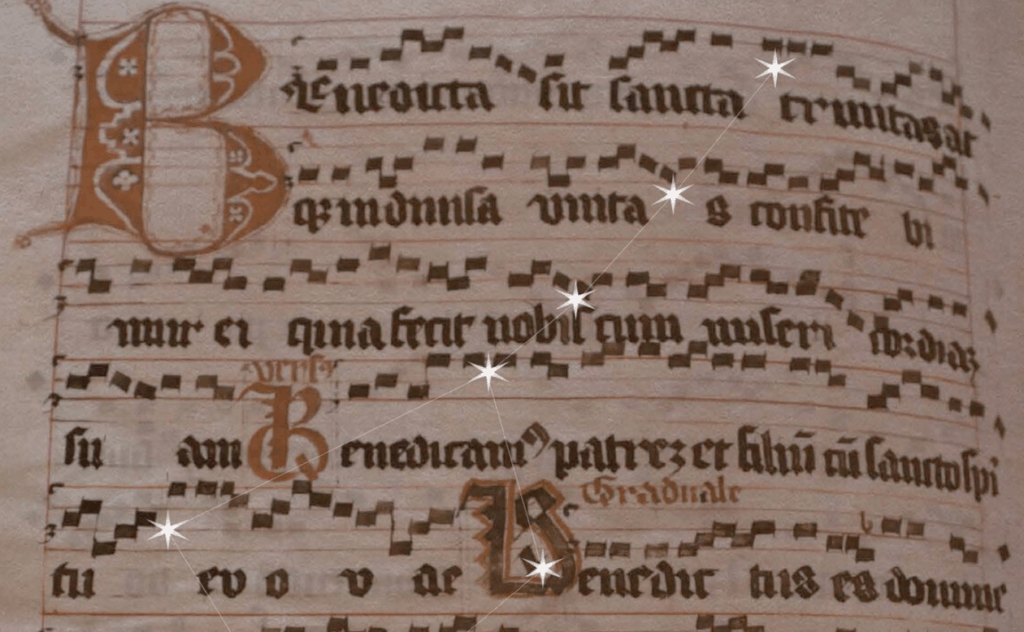 Benedicta sit sancta trinitas at
qz indiuisa vnita s confite bi
mur ei quia fecit nobis cum miseri cordiaz
su am vers Benedicam⁹ patrez et filiū cū sancto spi
Graduale
tu ev o v ae Benedic tus es domine